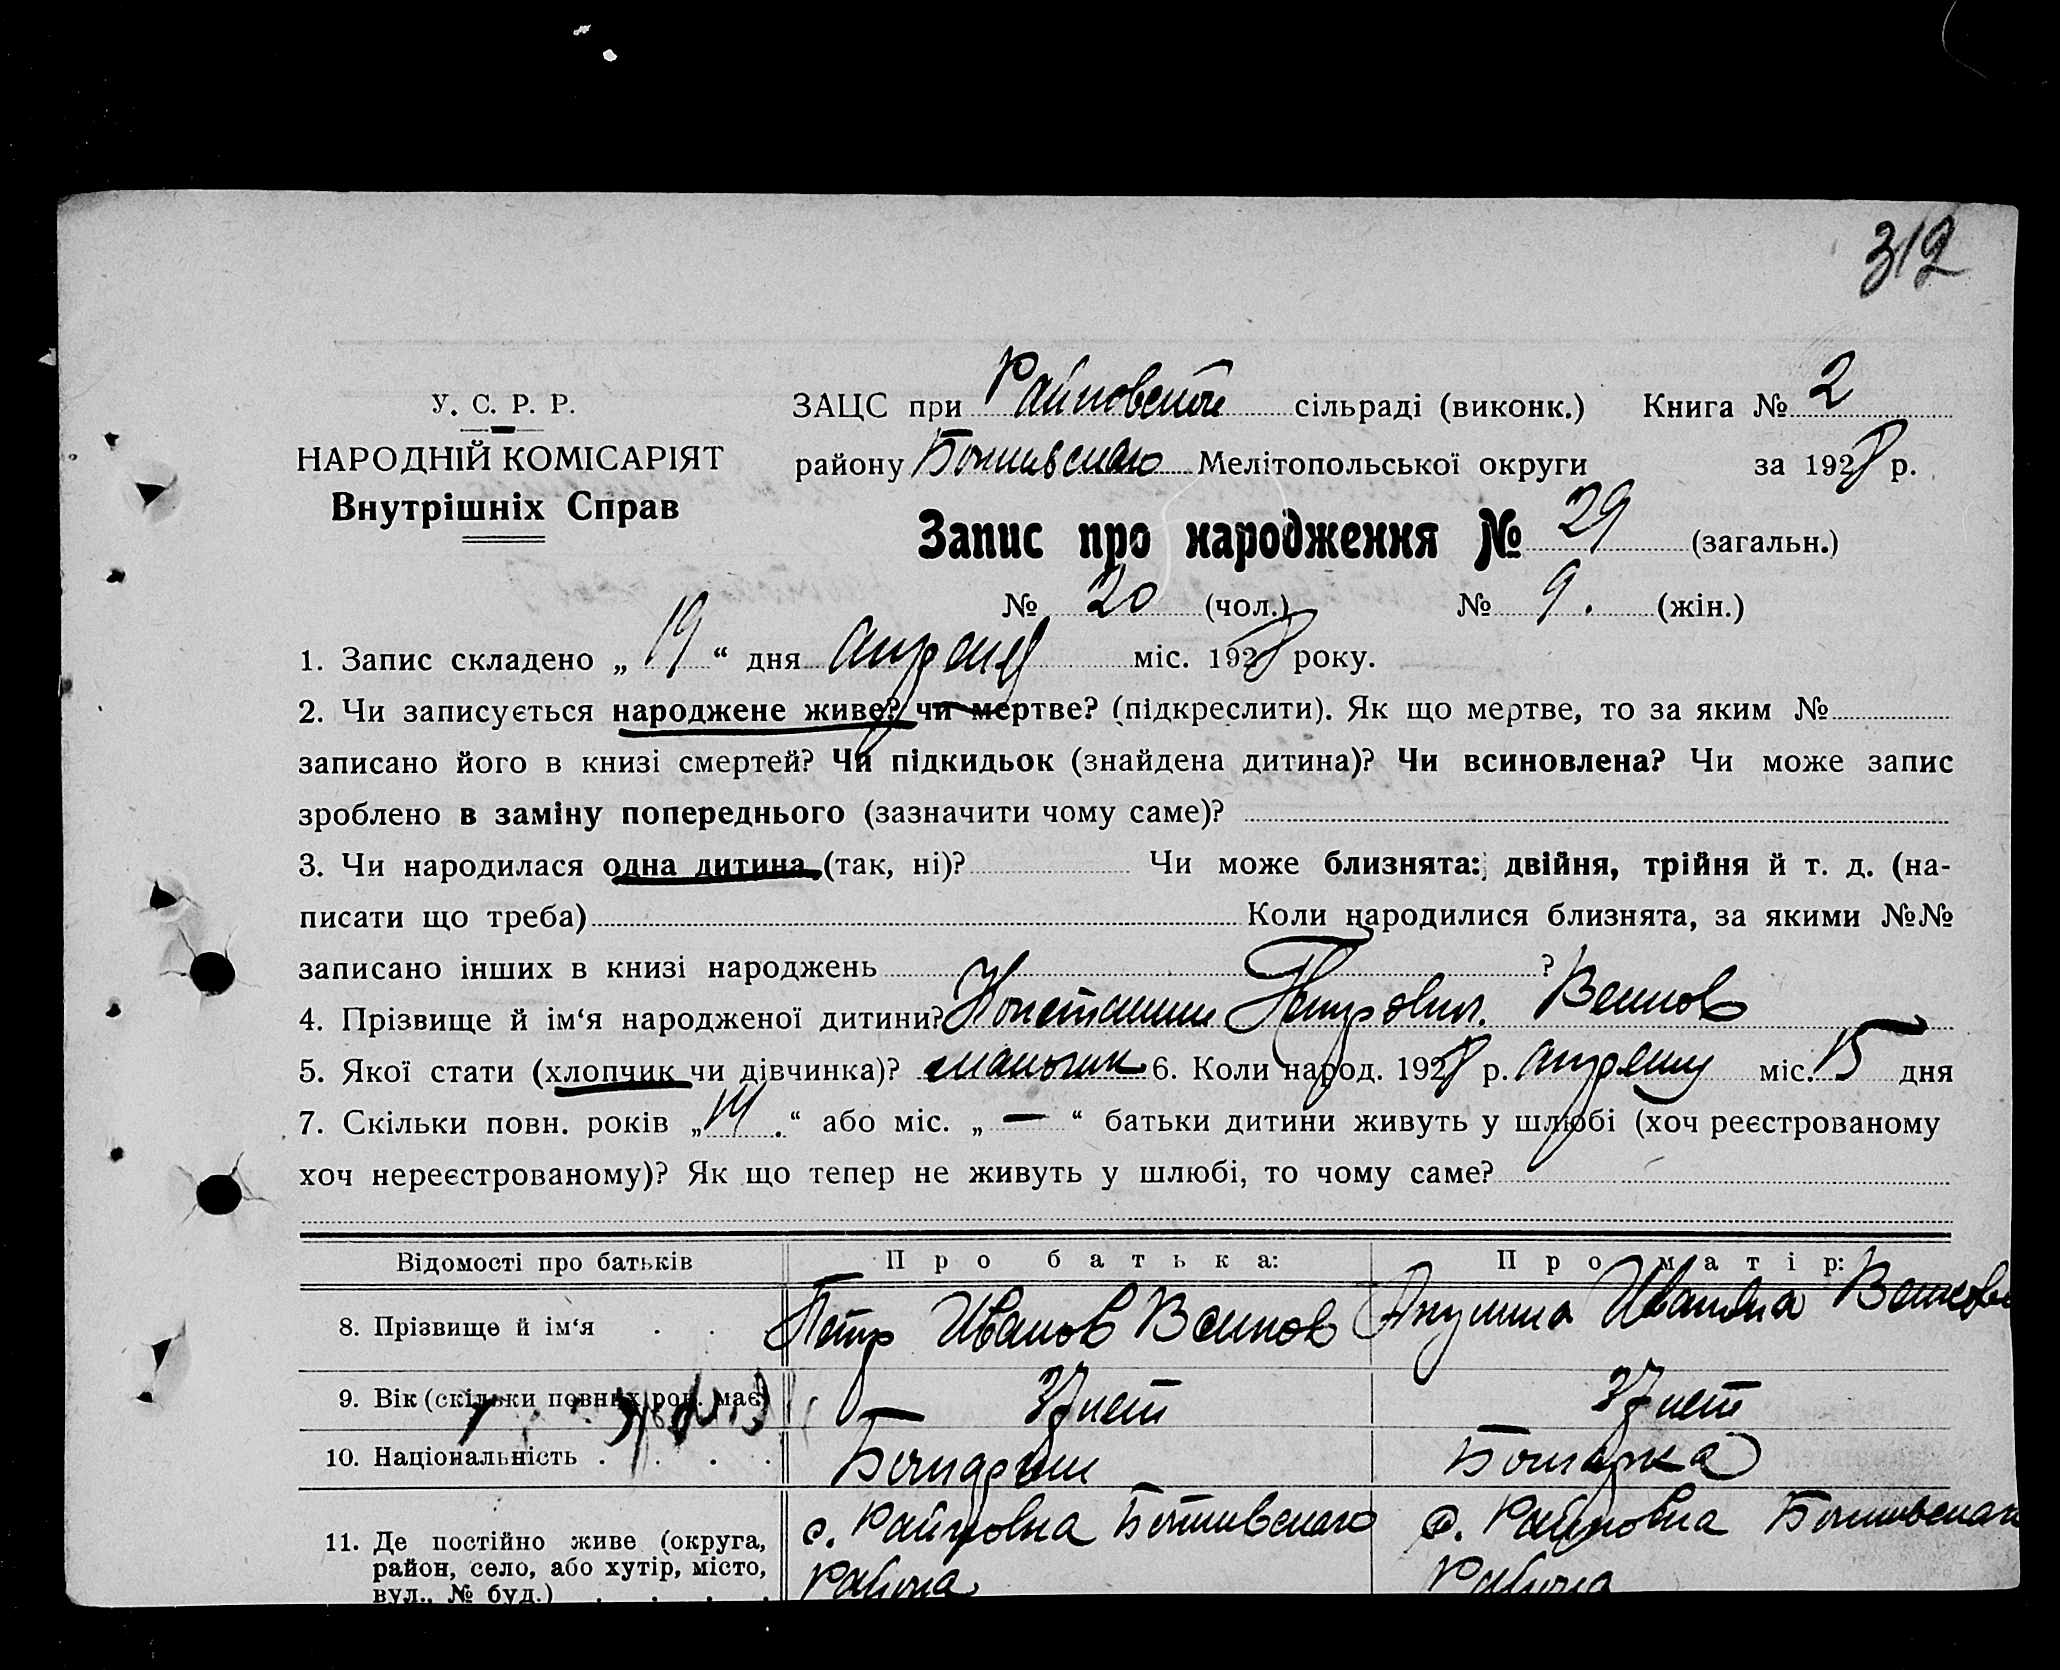 312
У. С. Р. Р.
НАРОДНІЙ КОМІСАРІЯТ
Внутрішніх Справ
ЗАЦС при Райновской сільраді (виконк.) Книга № 2
району Ботиевского Мелітопольської округи за 1928 р.
Запис про народження № 29 (загальн.)
№ 20 (чол.) № 9. (жін.)
1. Запис складено „ 19 “ дня апреля міс. 1928 року.
2. Чи записується народжене живе? чи мертве? (підкреслити). Як що мертве, то за яким №
записано його в книзі смертей? Чи підкидьок (знайдена дитина)? Чи всиновлена? Чи може запис
зроблено в заміну попереднього (зазначити чому саме)?
3. Чи народилася одна дитина (так, ні)? Чи може близнята: двійня, трійня й т. д. (на-
писати що треба) Коли народилися близнята, за якими №№
записано інших в книзі народжень ?
4. Прізвище й ім‘я народженої дитини? Константин Петрович. Веинов
5. Якої стати (хлопчик чи дівчинка)? мальчик 6. Коли народ. 1928 р. апрелу міс. 15 дня
7. Скільки повн. років „ 19 . “ або міс. „ — “ батьки дитини живуть у шлюбі (хоч реєстрованому
хоч нереєстрованому)? Як що тепер не живуть у шлюбі, то чому саме?
Відомості про батьків Про батька: Про матір:
8. Прізвище й ім‘я Петр Иванов Веинов Акулина Ивановна
9. Вік (скільки повних рок. має) 37 лет 37 лет
10. Національність Болгарин Болгарка
11. Де постійно живе (округа,
район, село, або хутір, місто,
вул., № буд.)
с. Райновка Ботиевского
Района
с. Райновка Ботиевского
Района